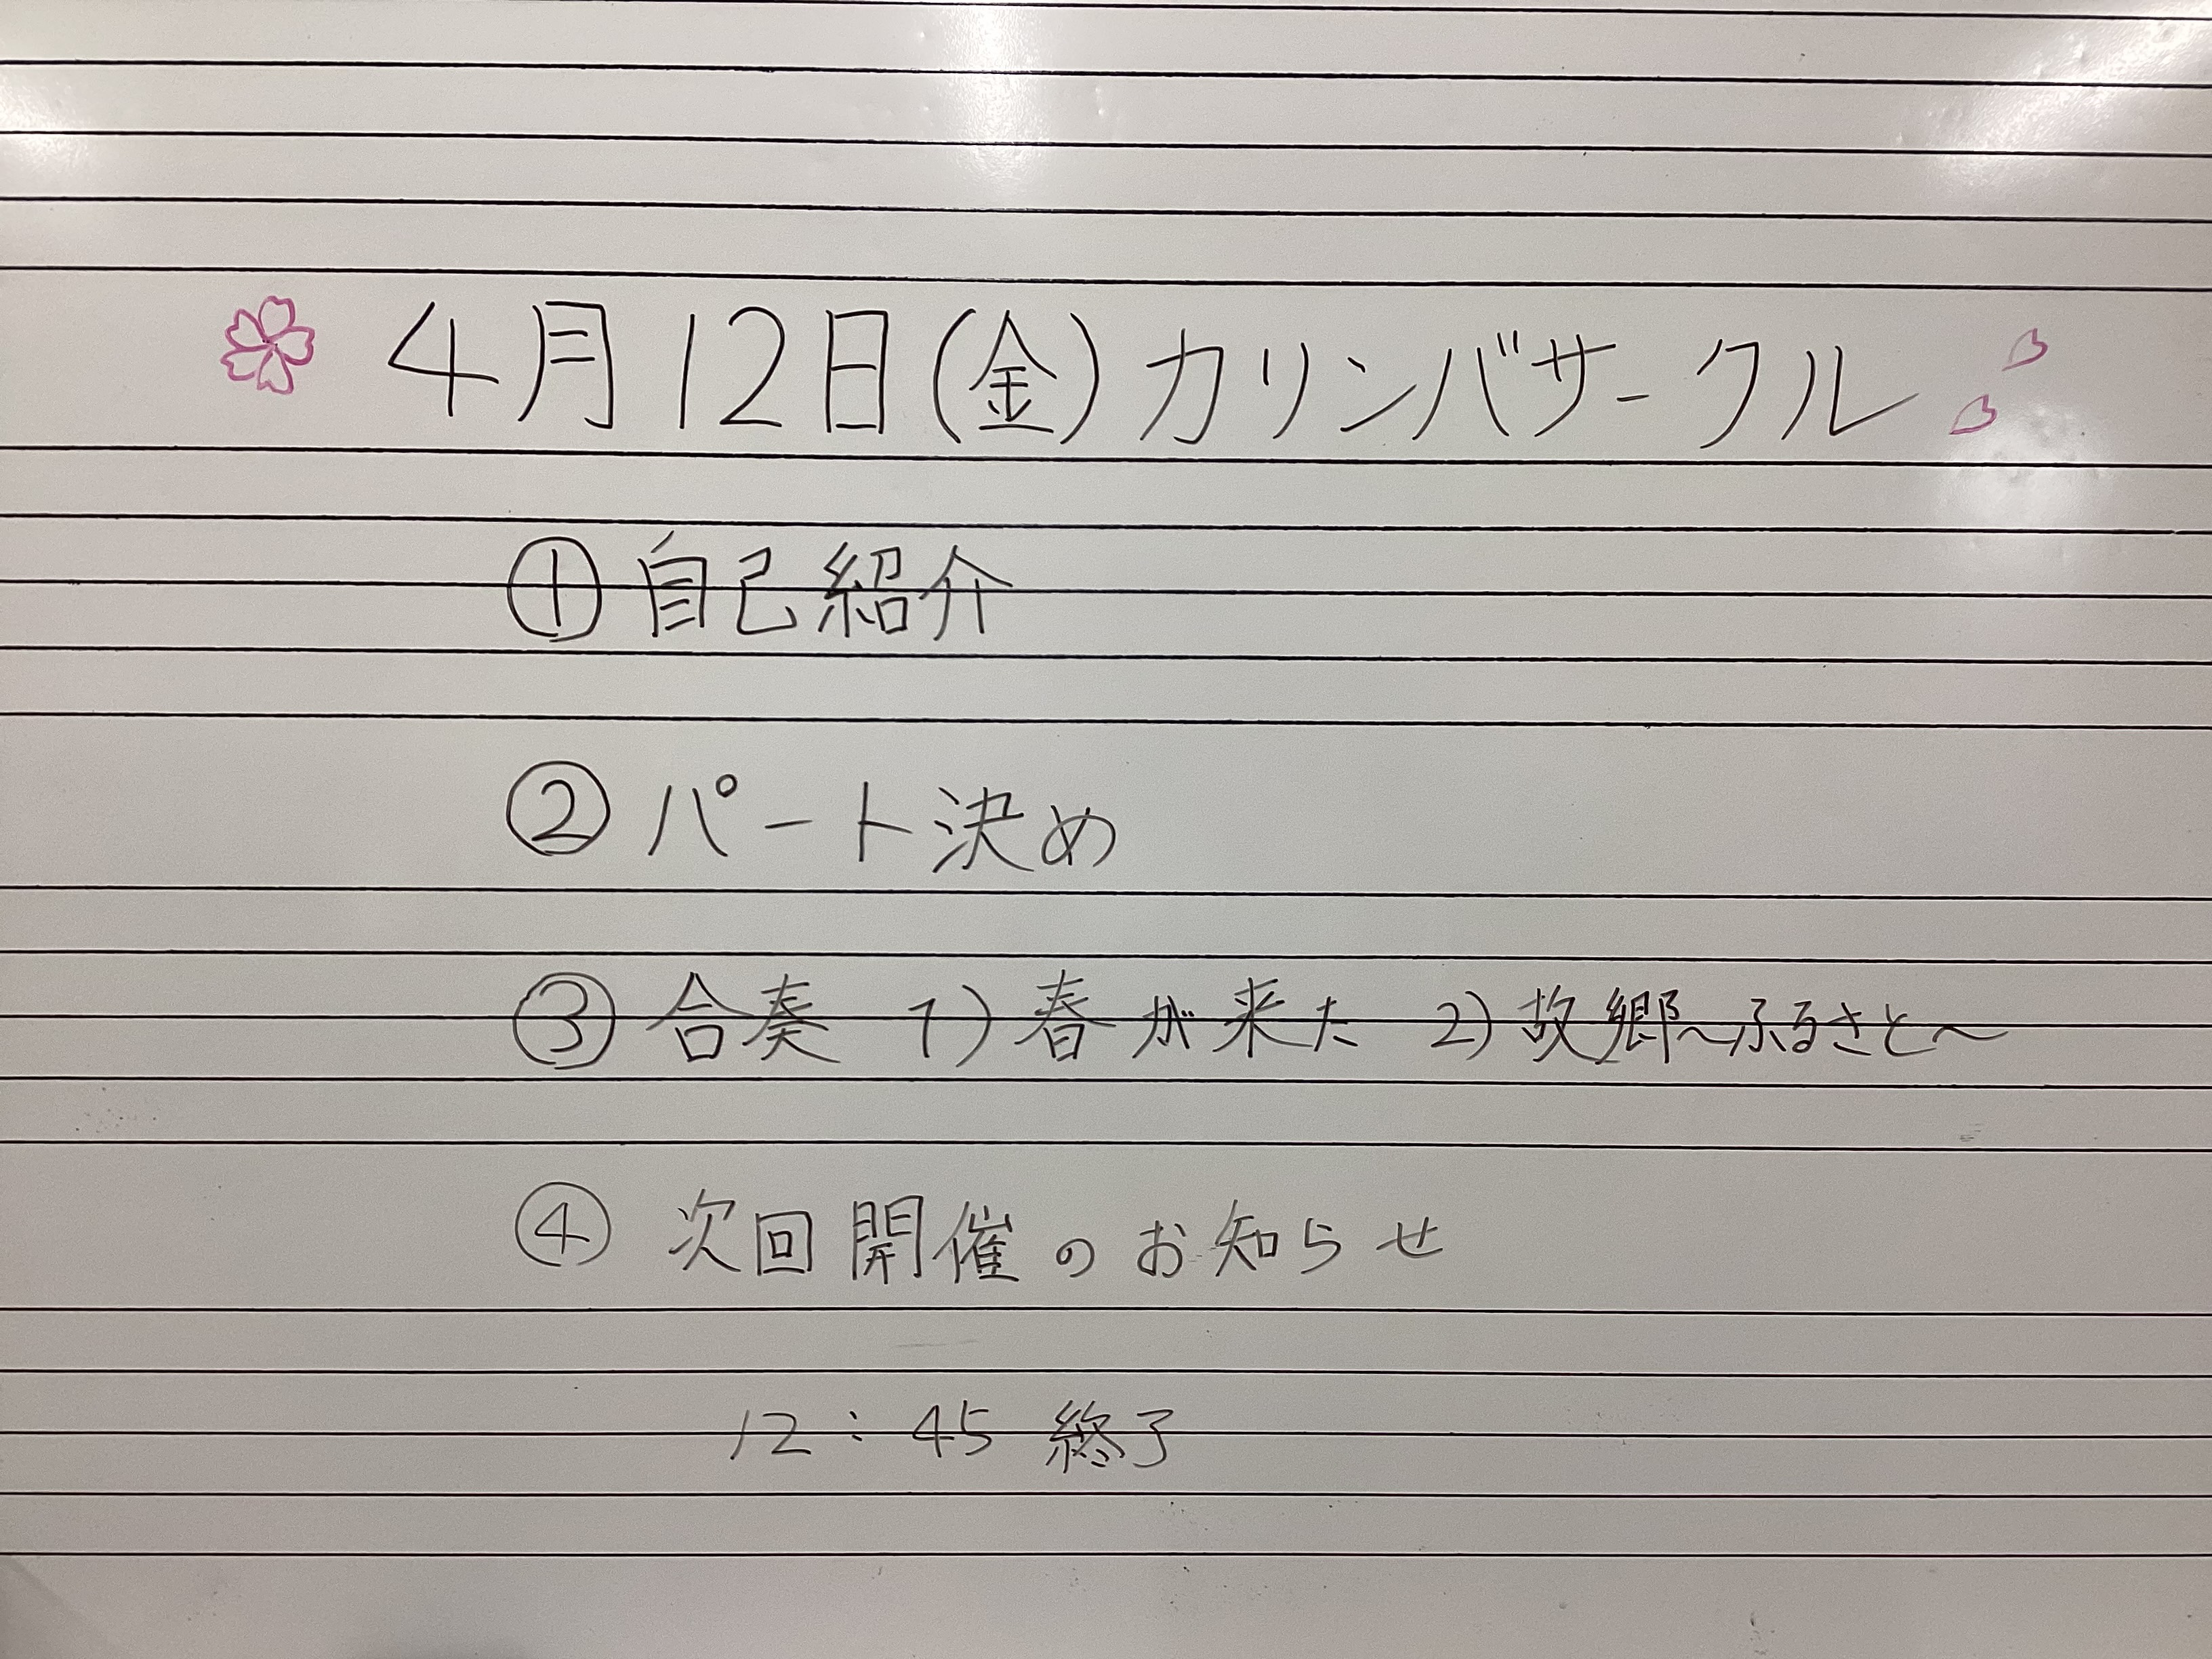 4月12日(金)カリンバサークル
①自己紹介
②パート決め
③合奏 1)春が来た 2)故郷〜ふるさと〜
④次回開催のお知らせ
12:45 終了